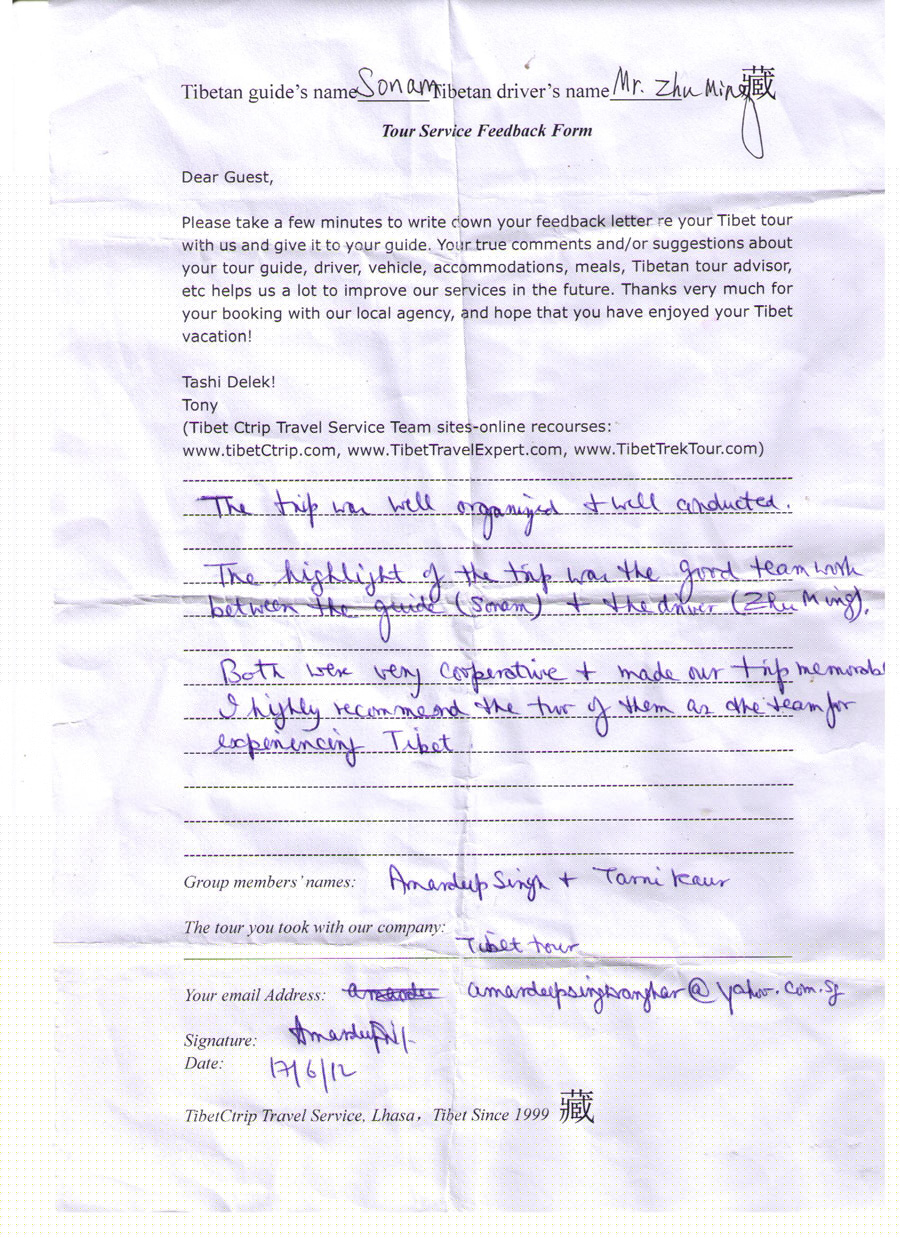 Tibetan guide's name Sonam Tibetan driver's name Mr. Zhu Ming 藏
Tour Service Feedback Form
Dear Guest,
Please take a few minutes to write down your feedback letter re your Tibet tour
with us and give it to your guide. Your true comments and/or suggestions about
your tour guide, driver, vehicle, accommodations, meals, Tibetan tour advisor,
etc helps us a lot to improve our services in the future. Thanks very much for
your booking with our local agency, and hope that you have enjoyed your Tibet
vacation!
Tashi Delek!
Tony
(Tibet Ctrip Travel Service Team sites-online recourses:
www.tibetCtrip.com, www.TibetTravelExpert.com, www.TibetTrekTour.com)
The trip was well organized + well conducted.
The highlight of the trip was the good team work
between the guide (Sonam) + the driver (Zhu Ming).
Both were very cooperative + made our trip memorabl
I highly recommend the two of them as the team for
experiencing Tibet
Group members' names: Amardeep Singh + Tarni Kaur
The tour you took with our company:
Tibet tour
Your email Address:
Signature:
Date: 17/6/12
TibetCtrip Travel Service, Lhasa，Tibet Since 1999 藏